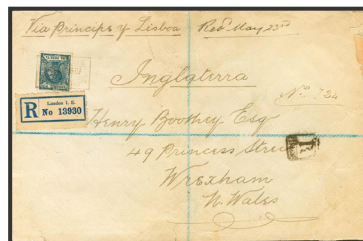 Via Principe y Lisboa Rec May 23rd
Inglaterra
London I. S.
R No 13930
Henry Boothey Esq
49 Princess Street
Wrexham
N. Wales